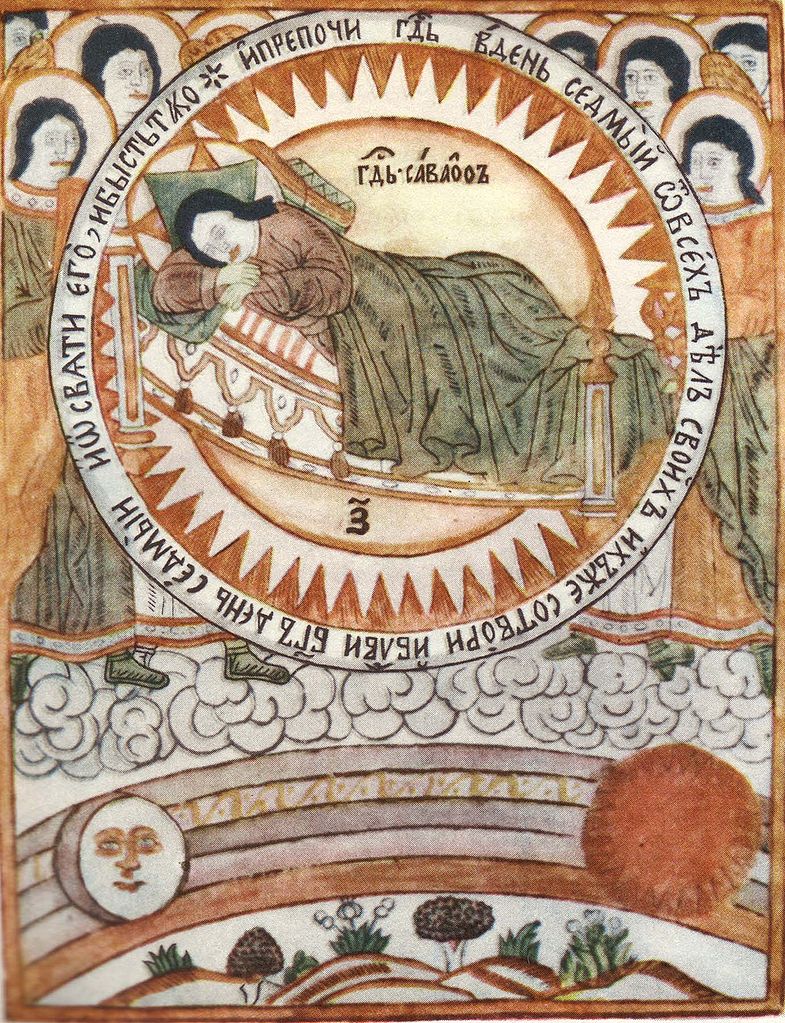 И҆ПРЕПОЧИ ГД҃Ь ВДЕНЬ СЕДМЫЙ ѾВСЕ́ХЪ ДѢЛЪ СВОИ́ХЪ И҆ХЪЖЕ СОТВОРИ И҆БЛВ҃И БГ҃Ъ ДЕНЬ СЕ́ДМЫЙ И҆Ѡ҆СВАТИ ЕГО̀, ИБЫСТЬТАКО *
ГД҃Ь·СА́ВАОѲЪ
З҃